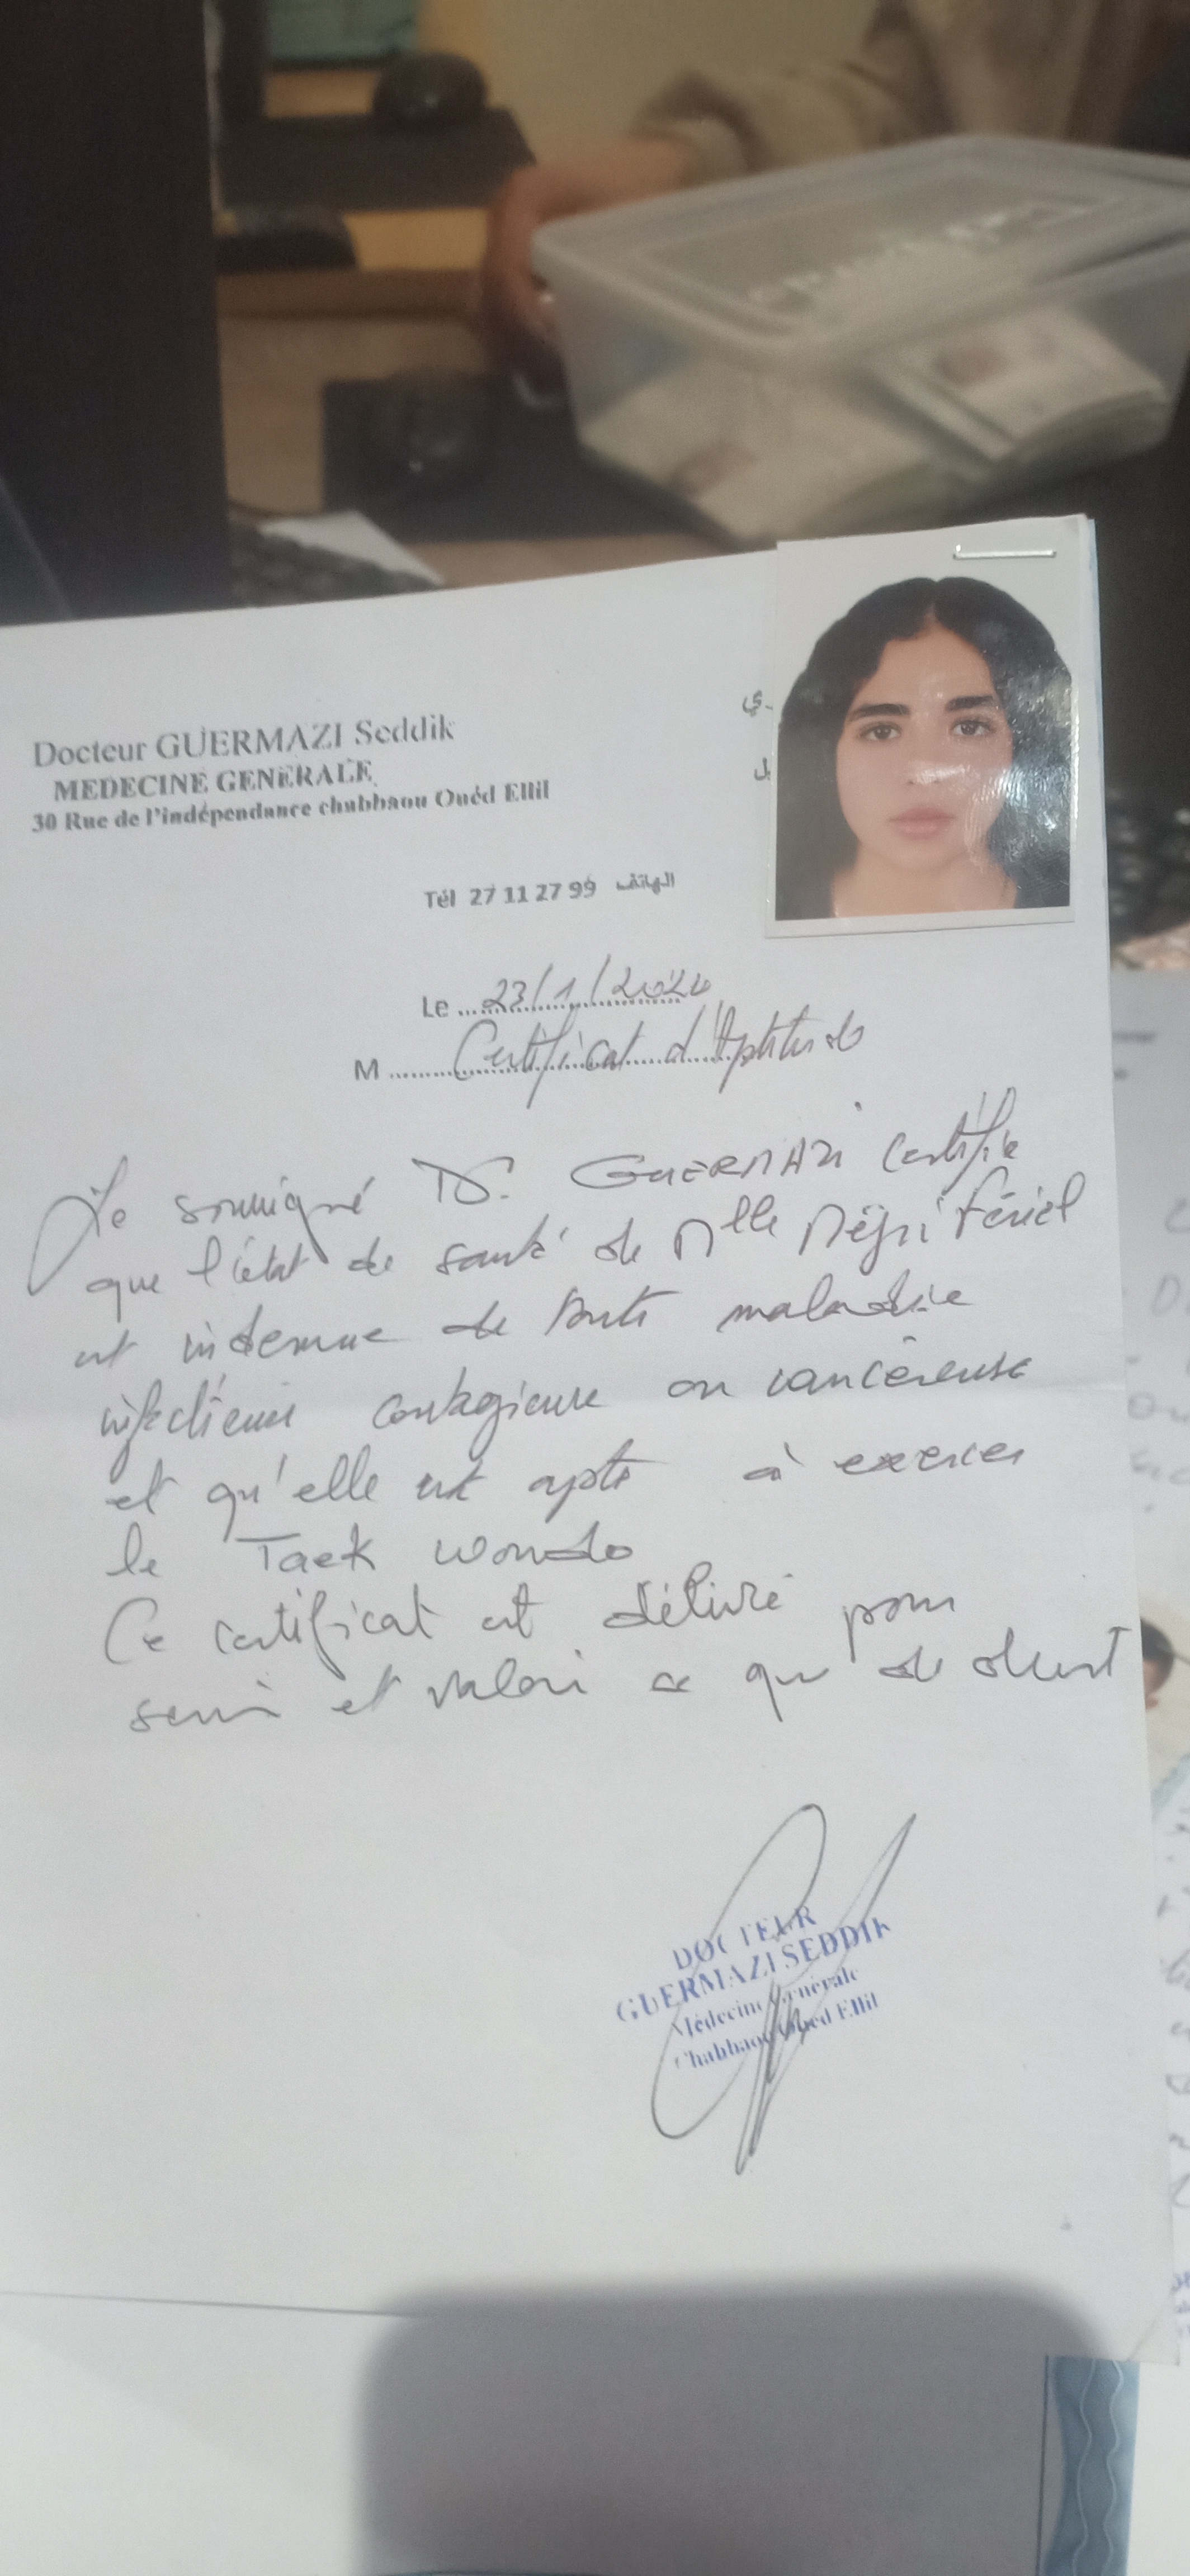 Docteur GUERMAZI Seddik
MEDECINE GENERALE
30 Rue de l'indépendance chabbaou Ouéd Ellil
Tél 27 11 27 99 الهاتف
Le 23/1/2024
M Certificat d'Aptitude
Je soussigné Dr. GUERMAZI certifie
que l'état de santé de Mlle Mejri Fériel
est indemne de toute maladie
infectieuse contagieuse ou cancéreuse
et qu'elle est apte à exercer
le Taek wondo
Ce certificat est délivré pour
servir et valoir ce que de droit
DOCTEUR
GUERMAZI SEDDIK
Médecine Générale
Chabbaou Oued Ellil